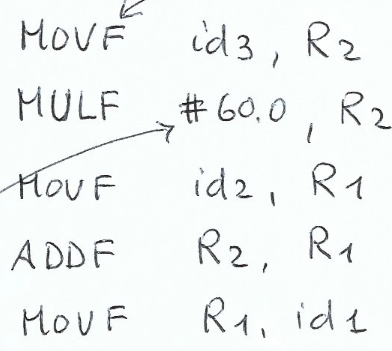 MOVF id3, R2
MULF #60.0, R2
MOVF id2, R1
ADDF R2, R1
MOVF R1, id1